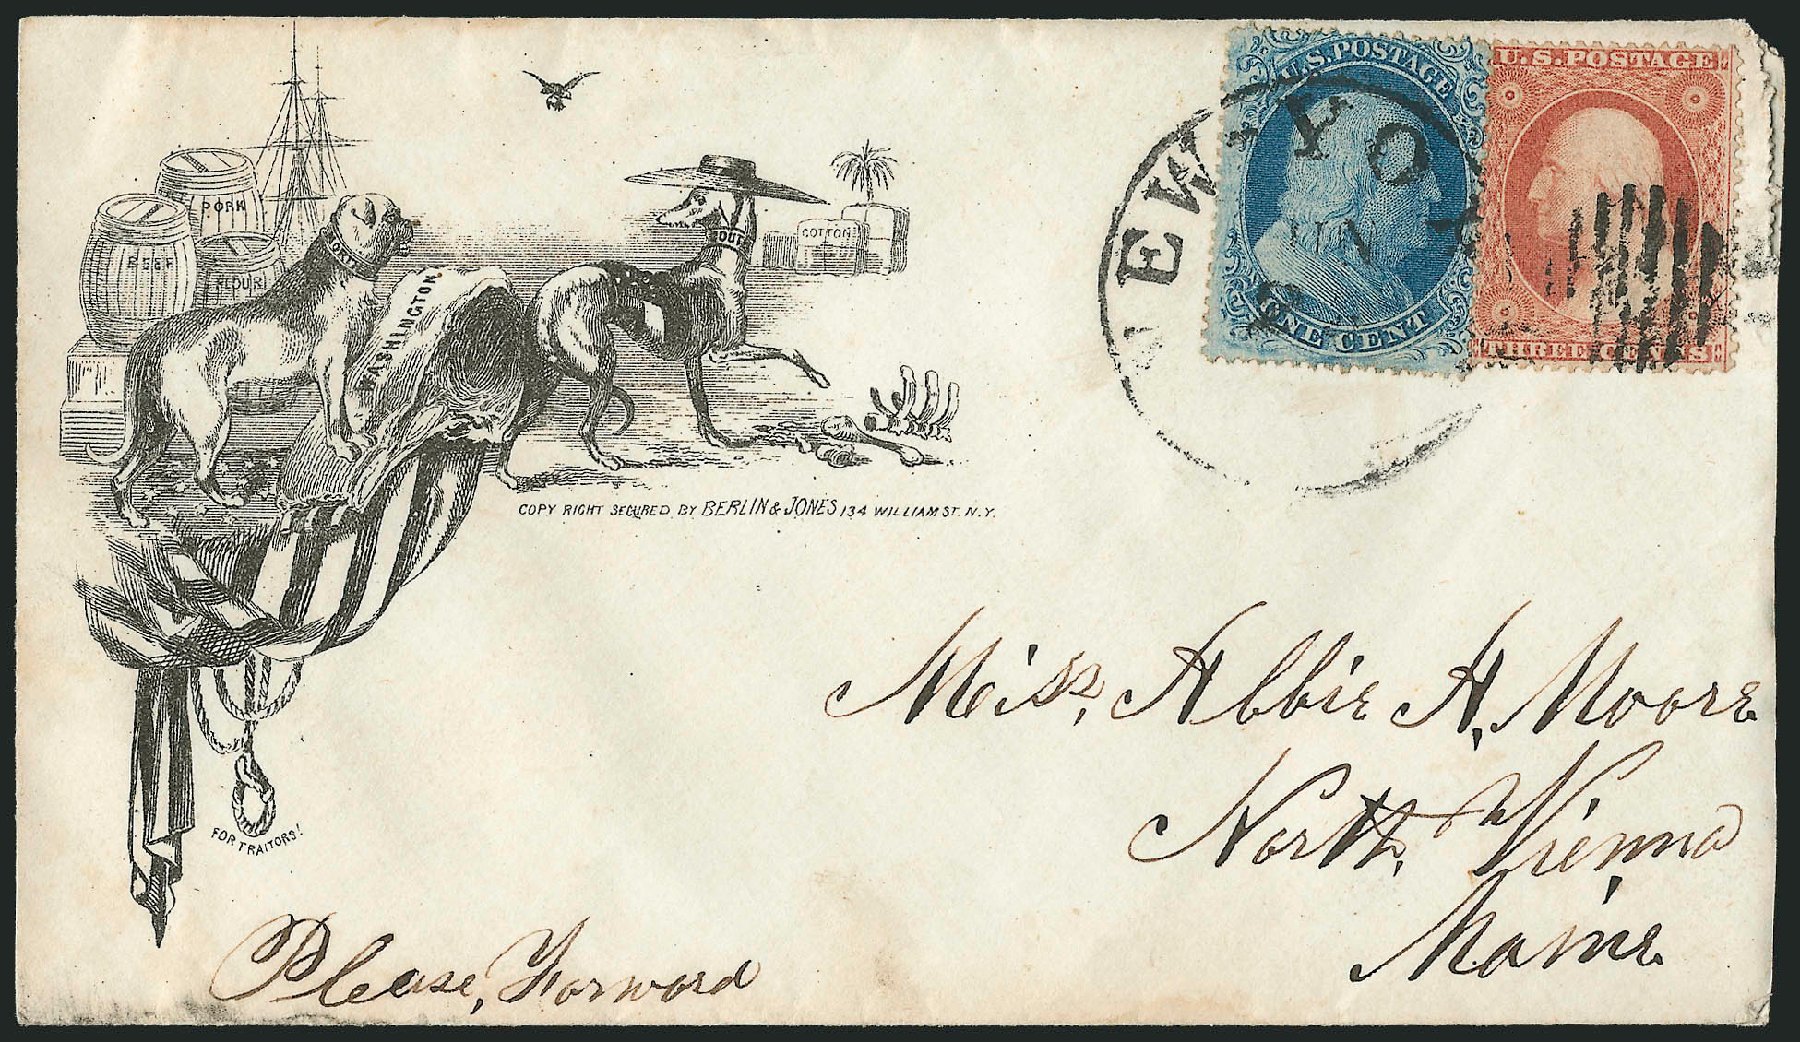 PORK
BEEF
FLOUR
WASHINGTON.
COTTON
COPY RIGHT SECURED BY BERLIN & JONES 134 WILLIAM ST. N.Y.
FOR TRAITORS!
U.S. POSTAGE
ONE CENT
U.S. POSTAGE
THREE CENTS
NEW-YO
Miss, Abbie A, Moore
North, Vienna
Maine
Please, Forward